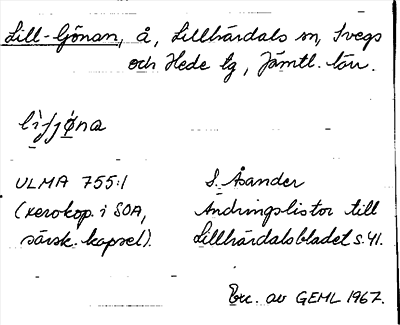 Lill-Gönan, å, Lillhärdals sn, Svegs
och Hede tg, Jämtl. län.
lìfjøna
ULMA 755:1
S. Åsander
(xerokop. i SOA,
Ändringslistor till
särsk. kapsel).
Lillhärdalsbladet s. 41.
Exc. av GEHL 1967.